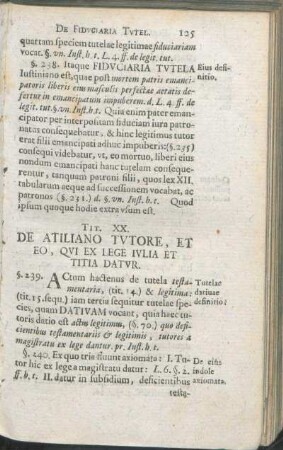 DE FIDVCIARIA TVTEL. 125
quartam speciem tutelae legitimae fiduciariam
vocat. §. vn. Inst. h. t. L. 4. ff. de legit. tut.
§. 238. Itaque FIDVCIARIA TVTELA
Eius defi-
nitio.
Iustiniano est, quae post mortem patris emanci-
patoris liberis eius masculis perfectae aetatis de-
fertur in emancipatum impuberem. d. L. 4. ff. de
legit. tut. §. vn. Inst. h. t. Quia enim pater emanci-
pator per interpositum fiduciam iura patro-
natus consequebatur, & hinc legitimus tutor
erat filii emancipati adhuc impuberis: (§. 235)
consequi videbatur, vt, eo mortuo, liberi eius
nondum emancipati hanc tutelam conseque-
rentur, tanquam patroni filii, quos lex XII.
tabularum aeque ad successionem vocabat, ac
patronos (§. 231.) d. §. vn. Inst. h. t. Quod
ipsum quoque hodie extra vsum est.
TIT. XX.
DE ATILIANO TVTORE, ET
EO, QVI EX LEGE IVLIA ET
TITIA DATVR.
§. 239. ACtum hactenus de tutela testa-
Tutelae
datiuae
definitio:
mentaria, (tit. 14.) & legitima:
(tit. 15. seqq.) iam tertia sequitur tutelae spe-
cies, quam DATIVAM vocant, quia haec tu-
toris datio est actus legitimus, (§. 70.) quo defi-
cientibus testamentariis & legitimis, tutores a
magistratu ex lege dantur. pr. Inst. h. t.
§. 240. Ex quo tria fluunt axiomata: I. Tu-
De eius
indole
axiomata.
tor hic ex lege a magistratu datur: L. 6. §. 2.
ff. h. t. II. datur in subsidium, deficientibus
testa-